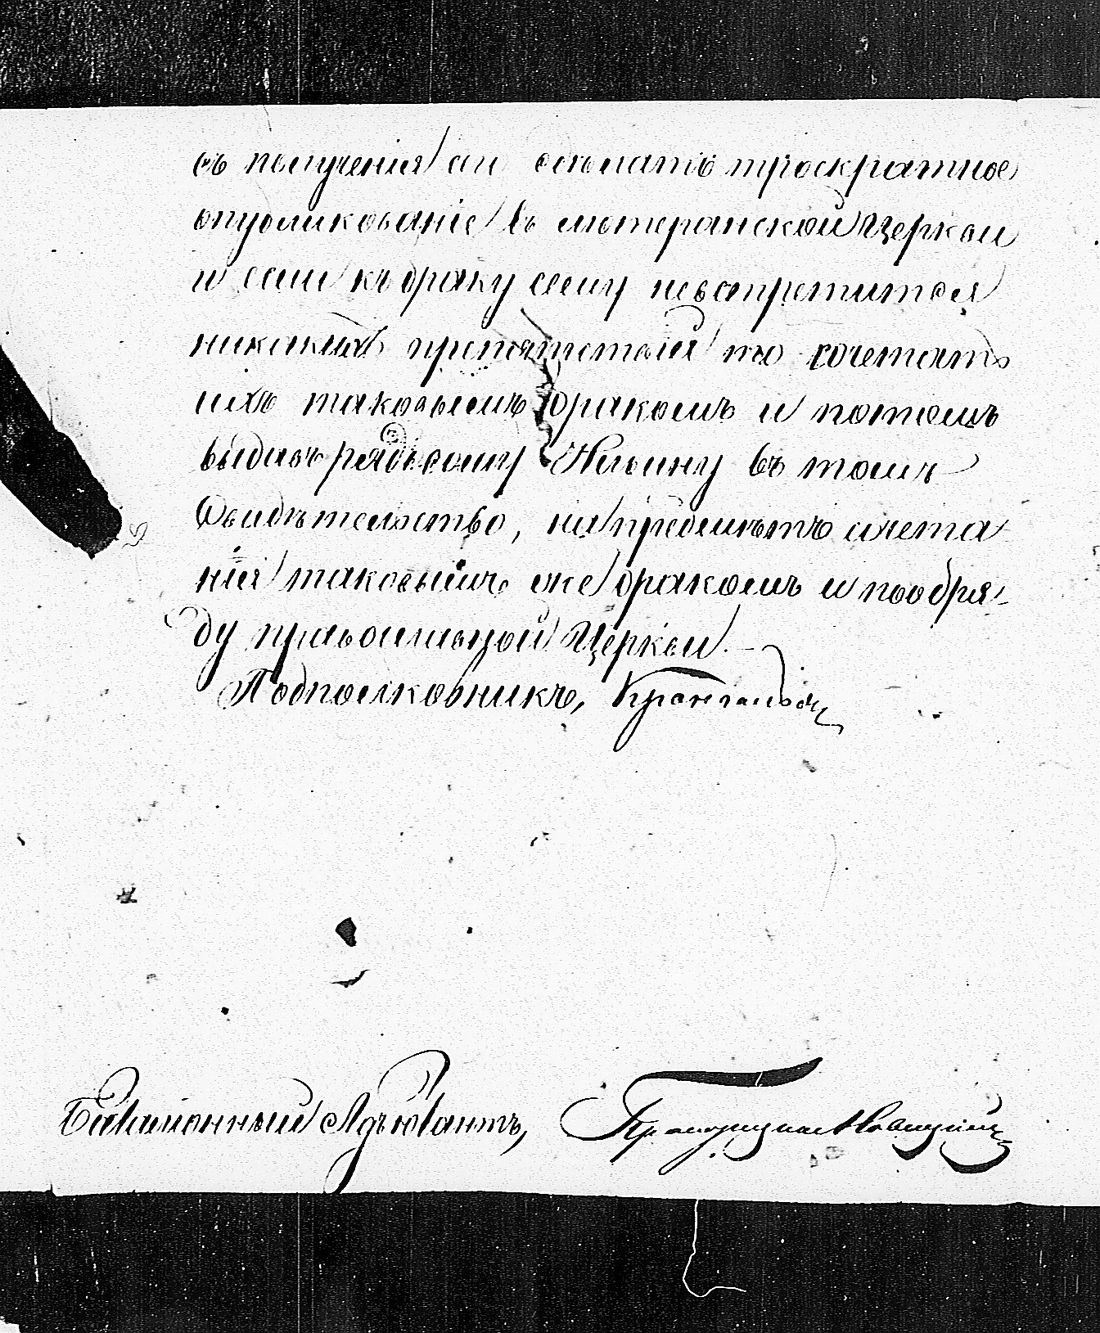 съ полученія сего сдѣлать троекратное
опубликованіе въ лютеранской Церкви
и если къ браку сему невстретится
никакихъ препятствій то сочетать
ихъ таковымъ бракомъ и потомъ
выдавъ рядовому Ильину въ томъ
Свидѣтельство, на предметъ сочета
нія таковымъ же бракомъ и пообря-
ду православной Церкви.
Подполковникъ,
Баталіонный Адъютантъ, Прапорщикъ